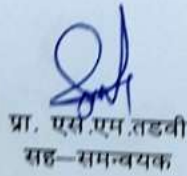 प्रा. एस.एम.तडवी
सह–समन्वयक